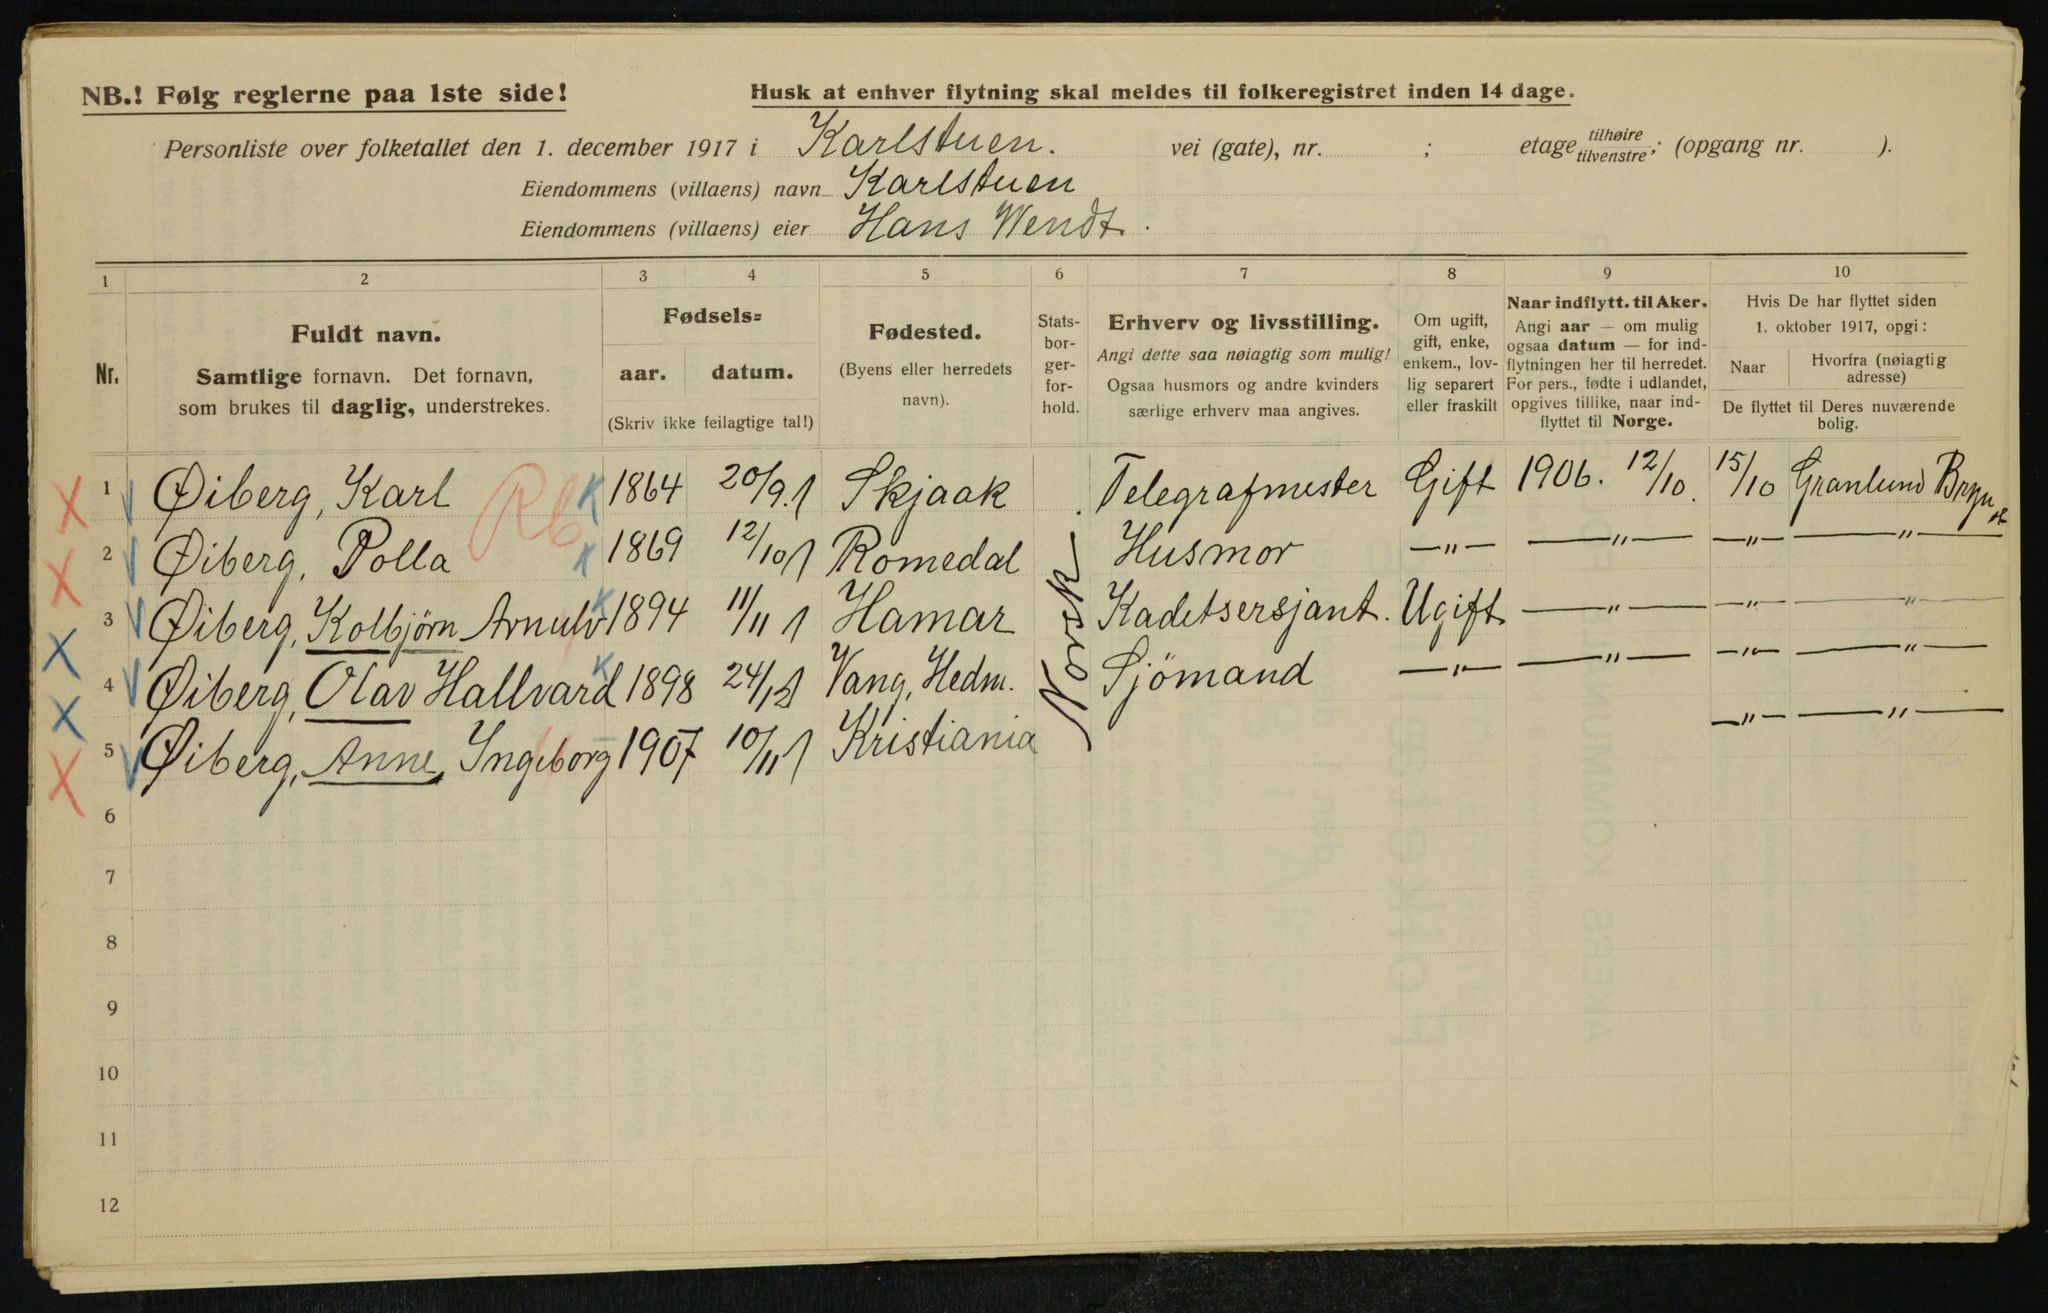 NB.! Følg reglerne paa 1ste side!
Husk at enhver flytning skal meldes til folkeregistret inden 14 dage.
Personliste over folketallet den 1. december 1917 i Karlstuen. vei (gate), nr. ; etage tilhøire / tilvenstre ; (opgang nr. ).
Eiendommens (villaens) navn Karlstuen
Eiendommens (villaens) eier Hans Wendt.
1 2 3 4 5 6 7 8 9 10
Nr.
Fuldt navn.
Samtlige fornavn. Det fornavn,
som brukes til daglig, understrekes.
Fødsels=
aar. datum.
(Skriv ikke feilagtige tal!)
Fødested.
(Byens eller herredets
navn).
Stats-
bor-
ger-
for-
hold.
Erhverv og livsstilling.
Angi dette saa nøiagtig som mulig!
Ogsaa husmors og andre kvinders
særlige erhverv maa angives.
Om ugift,
gift, enke,
enkem., lov-
lig separert
eller fraskilt
Naar indflytt. til Aker.
Angi aar — om mulig
ogsaa datum — for ind-
flytningen her til herredet.
For pers., fødte i udlandet,
opgives tillike, naar ind-
flyttet til Norge.
Hvis De har flyttet siden
1. oktober 1917, opgi:
Naar
Hvorfra (nøiagtig
adresse)
De flyttet til Deres nuværende
bolig.
1 Øiberg, Karl K 1864 20/9 Skjaak Telegrafmester Gift 1906. 12/10. 15/10 Granlund Bryn
2 Øiberg, Polla K 1869 12/10 Romedal Husmor —"— —"— —"— —"—
3 Øiberg, Kolbjörn Arnulv K 1894 11/11 Hamar Kadetsersjant. Ugift —"— —"— —"—
4 Øiberg, Olav Hallvard K 1898 24/12 Vang, Hedm. Sjömand —"— —"— —"— —"—
5 Øiberg, Anne Ingeborg 1907 10/11 Kristiania —"— —"—
Norsk
Rb
6
7
8
9
10
11
12